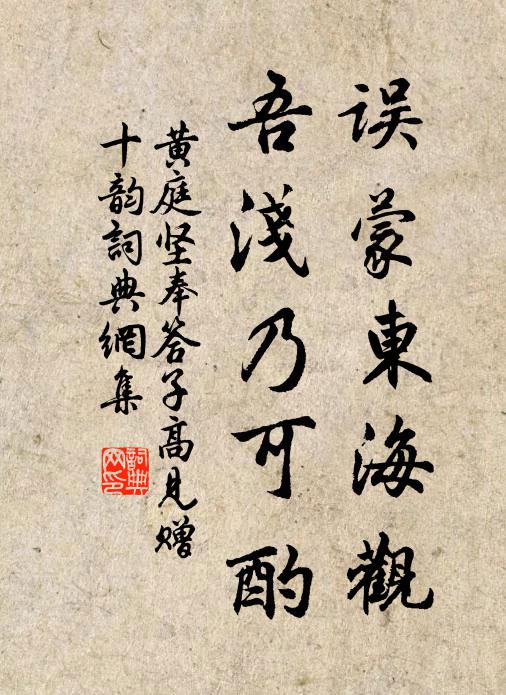 误蒙東海觀
吾淺乃可酌
黄庭坚奉答子高见赠
十韵詞典網集
詞典
网印